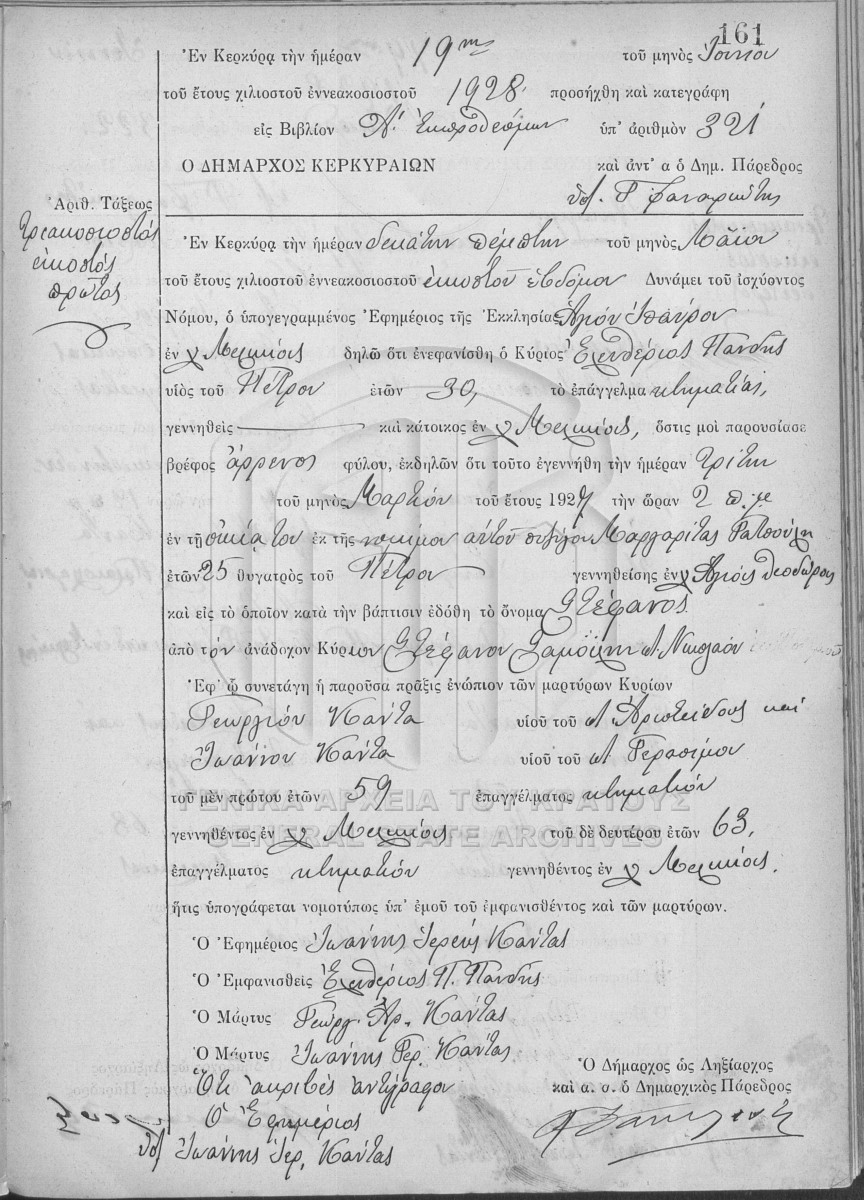 161
Ἐν Κερκύρᾳ τὴν ἡμέραν 19ην τοῦ μηνὸς Ἰουνίου
τοῦ ἔτους χιλιοστοῦ ἐννεακοσιοστοῦ 1928 προσήχθη καὶ κατεγράφη
εἰς Βιβλίον Α. Ἐκπροθέσμων ὑπ' ἀριθμὸν 321
Ο ΔΗΜΑΡΧΟΣ ΚΕΡΚΥΡΑΙΩΝ καὶ ἀντ' α ὁ Δημ. Πάρεδρος
Ἀριθ. Τάξεως
Τριακοσιοστός
εἰκοστός
πρῶτος
Ἐν Κερκύρᾳ τὴν ἡμέραν δεκάτην πέμπτην τοῦ μηνὸς Μαΐου
τοῦ ἔτους χιλιοστοῦ ἐννεακοσιοστοῦ εἰκοστοῦ ἑβδόμου Δυνάμει τοῦ ἰσχύοντος
Νόμου, ὁ ὑπογεγραμμένος Ἐφημέριος τῆς Ἐκκλησίας
ἐν χ Μελικίοις δηλῶ ὅτι ἐνεφανίσθη ὁ Κύριος Ἐλευθέριος Πανδῆς
υἱὸς τοῦ Πέτρου ἐτῶν 30, τὸ ἐπάγγελμα κτηματίας,
γεννηθεὶς καὶ κάτοικος ἐν χ Μελικίοις, ὅστις μοὶ παρουσίασε
βρέφος ἄρρενος φύλου, ἐκδηλῶν ὅτι τοῦτο ἐγεννήθη τὴν ἡμέραν τρίτην
τοῦ μηνὸς Μαρτίου τοῦ ἔτους 1927 τὴν ὥραν 2 π.μ
ἐν τῇ οἰκίᾳ του ἐκ τῆς νομίμου αὐτοῦ συζύγου Μαργαρίτας
ἐτῶν 25 θυγατρὸς τοῦ Πέτρου γεννηθείσης ἐν χ Ἁγίοις Θεοδώροις
καὶ εἰς τὸ ὁποῖον κατὰ τὴν βάπτισιν ἐδόθη τὸ ὄνομα Στέφανος
ἀπὸ τὸν ἀνάδοχον Κύριον Στέφανον Σαμοΐλην Νικολάου
Ἐφ' ᾧ συνετάγη ἡ παροῦσα πρᾶξις ἐνώπιον τῶν μαρτύρων Κυρίων
Γεωργίου Κάντα υἱοῦ τοῦ Ἀριστείδους καὶ
Ἰωάννου Κάντα υἱοῦ τοῦ Γερασίμου
τοῦ μὲν πρώτου ἐτῶν 59 ἐπαγγέλματος κτηματίου
γεννηθέντος ἐν χ Μελικίοις τοῦ δὲ δευτέρου ἐτῶν 63,
ἐπαγγέλματος κτηματίου γεννηθέντος ἐν χ Μελικίοις.
ἥτις ὑπογράφεται νομοτύπως ὑπ' ἐμοῦ τοῦ ἐμφανισθέντος καὶ τῶν μαρτύρων.
Ὁ Ἐφημέριος Ἰωάννης Ἱερεὺς Κάντας
Ὁ Ἐμφανισθεὶς Ἐλευθέριος Π. Πανδῆς
Ὁ Μάρτυς Γεώργ. Ἀρ. Κάντας
Ὁ Μάρτυς Ἰωάννης Γερ. Κάντας
Ὅτι ἀκριβὲς ἀντίγραφον
Ὁ Ἐφημέριος
Ἰωάννης Ἱερ. Κάντας
Ὁ Δήμαρχος ὡς Ληξίαρχος
καὶ α. α. ὁ Δημαρχικὸς Πάρεδρος
ΓΕΝΙΚΑ ΑΡΧΕΙΑ ΤΟΥ ΚΡΑΤΟΥΣ
GENERAL STATE ARCHIVES